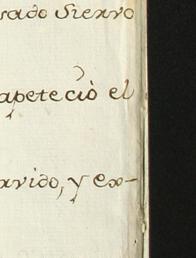 sado Siervo
apeteciò el
avido, y ex-